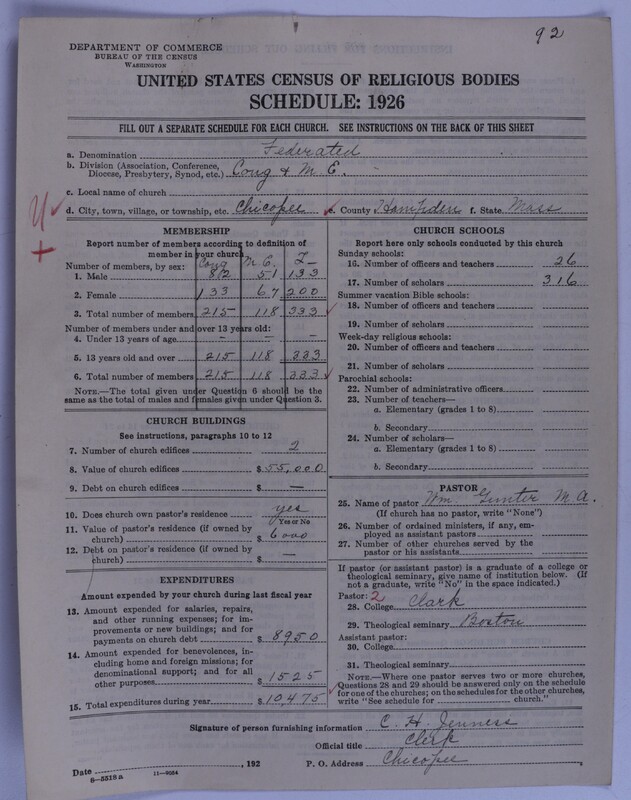 92
DEPARTMENT OF COMMERCE
BUREAU OF THE CENSUS
WASHINGTON
UNITED STATES CENSUS OF RELIGIOUS BODIES
SCHEDULE: 1926
FILL OUT A SEPARATE SCHEDULE FOR EACH CHURCH. SEE INSTRUCTIONS ON THE BACK OF THIS SHEET
a. Denomination Federated
b. Division (Association, Conference, Diocese, Presbytery, Synod, etc.) Cong & M. E.
c. Local name of church
d. City, town, village, or township, etc. Chicopee e. County Hampden f. State Mass
MEMBERSHIP
Report number of members according to definition of
member in your church
Number of members, by sex: Cong M. E.
1. Male 82 51 133
2. Female 133 67 200
3. Total number of members 215 118 333
Number of members under and over 13 years old:
4. Under 13 years of age – – –
5. 13 years old and over 215 118 333
6. Total number of members 215 118 333
NOTE.—The total given under Question 6 should be the
same as the total of males and females given under Question 3.
CHURCH BUILDINGS
See instructions, paragraphs 10 to 12
7. Number of church edifices 2
8. Value of church edifices $ 55,000
9. Debt on church edifices $ —
10. Does church own pastor's residence yes
Yes or No
11. Value of pastor's residence (if owned by
church) $ 6000
12. Debt on pastor's residence (if owned by
church) $ —
EXPENDITURES
Amount expended by your church during last fiscal year
13. Amount expended for salaries, repairs,
and other running expenses; for im-
provements or new buildings; and for
payments on church debt $ 8950
14. Amount expended for benevolences, in-
cluding home and foreign missions; for
denominational support; and for all
other purposes $ 1525
15. Total expenditures during year $ 10,475
CHURCH SCHOOLS
Report here only schools conducted by this church
Sunday schools:
16. Number of officers and teachers 26
17. Number of scholars 316
Summer vacation Bible schools:
18. Number of officers and teachers
19. Number of scholars
Week-day religious schools:
20. Number of officers and teachers
21. Number of scholars
Parochial schools:
22. Number of administrative officers
23. Number of teachers—
a. Elementary (grades 1 to 8)
b. Secondary
24. Number of scholars—
a. Elementary (grades 1 to 8)
b. Secondary
PASTOR
25. Name of pastor Wm. Gunter M. A.
(If church has no pastor, write "None")
26. Number of ordained ministers, if any, em-
ployed as assistant pastors
27. Number of other churches served by the
pastor or his assistants
If pastor (or assistant pastor) is a graduate of a college or
theological seminary, give name of institution below. (If
not a graduate, write "No" in the space indicated.)
Pastor: 2
28. College Clark
29. Theological seminary Boston
Assistant pastor:
30. College
31. Theological seminary
NOTE.—Where one pastor serves two or more churches,
Questions 28 and 29 should be answered only on the schedule
for one of the churches; on the schedules for the other churches,
write "See schedule for church."
Signature of person furnishing information C. H. Jenness
Official title Clerk
Date , 192 P. O. Address Chicopee
8-5518a 11-9084